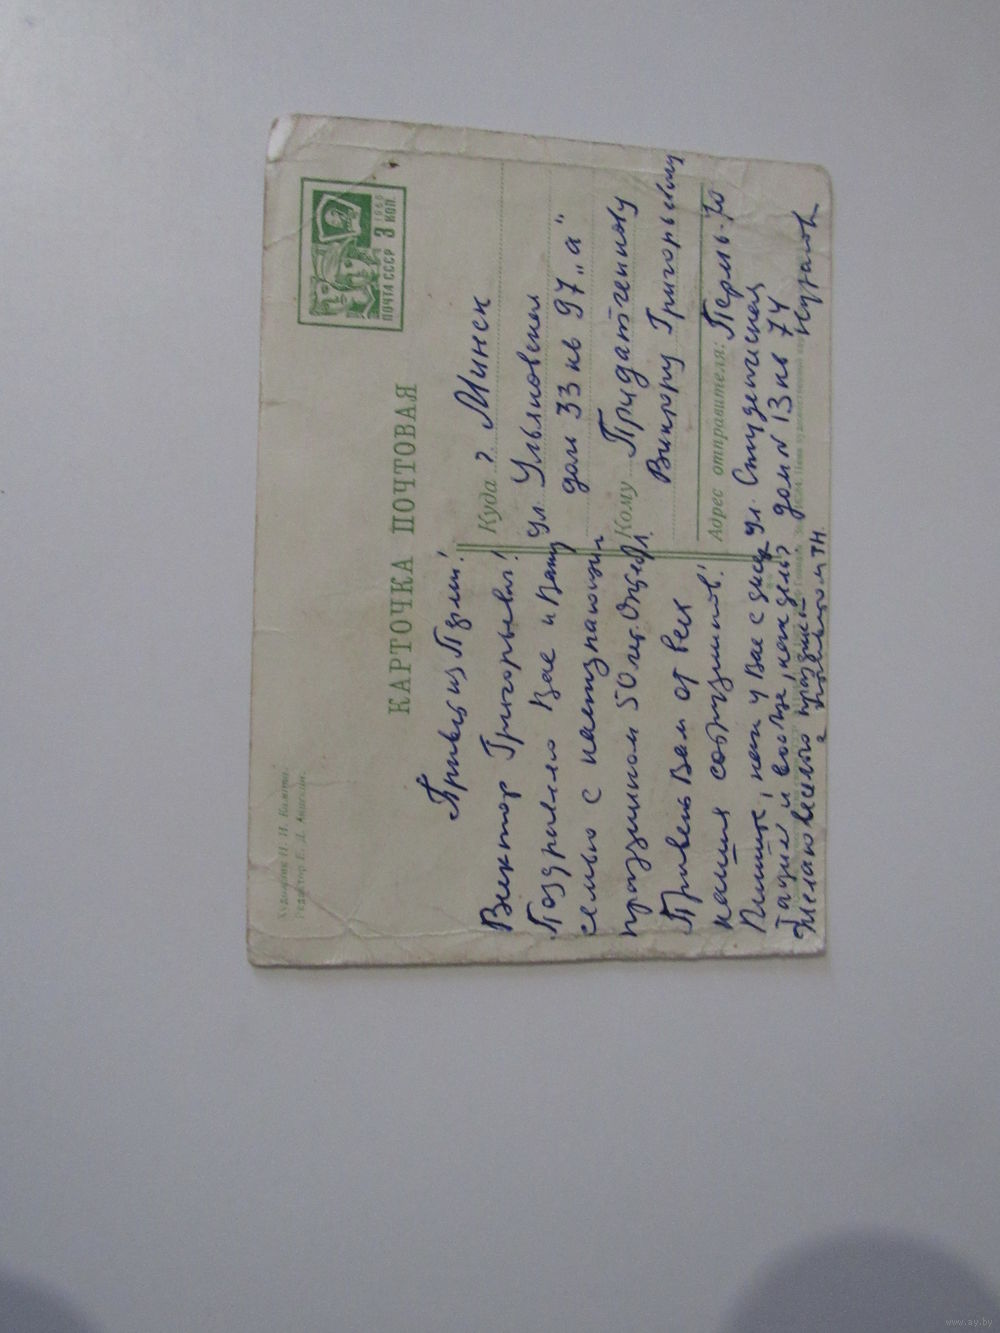 Художник Н. Н.
Редактор Е. Д. Анискин.
ПОЧТА СССР 3 КОП.
1966
КАРТОЧКА ПОЧТОВАЯ
Привет из Перми!
Виктор Григорьевич!
Поздравляю Вас и Вашу
семью с наступающим
праздником 50 лет. Октября.
Привет Вам от всех
наших сотрудников!
Пишите, как у Вас с
и вообще, как дела?
Желаю весело праздник
Куда г. Минск
ул. Ульяновская
дом 33 кв 97 „а"
Кому Придатченкову
Виктору Григорьевичу
Адрес отправителя: Пермь-70
ул. Студенческая
дом N 13 кв 74
www.ay.by